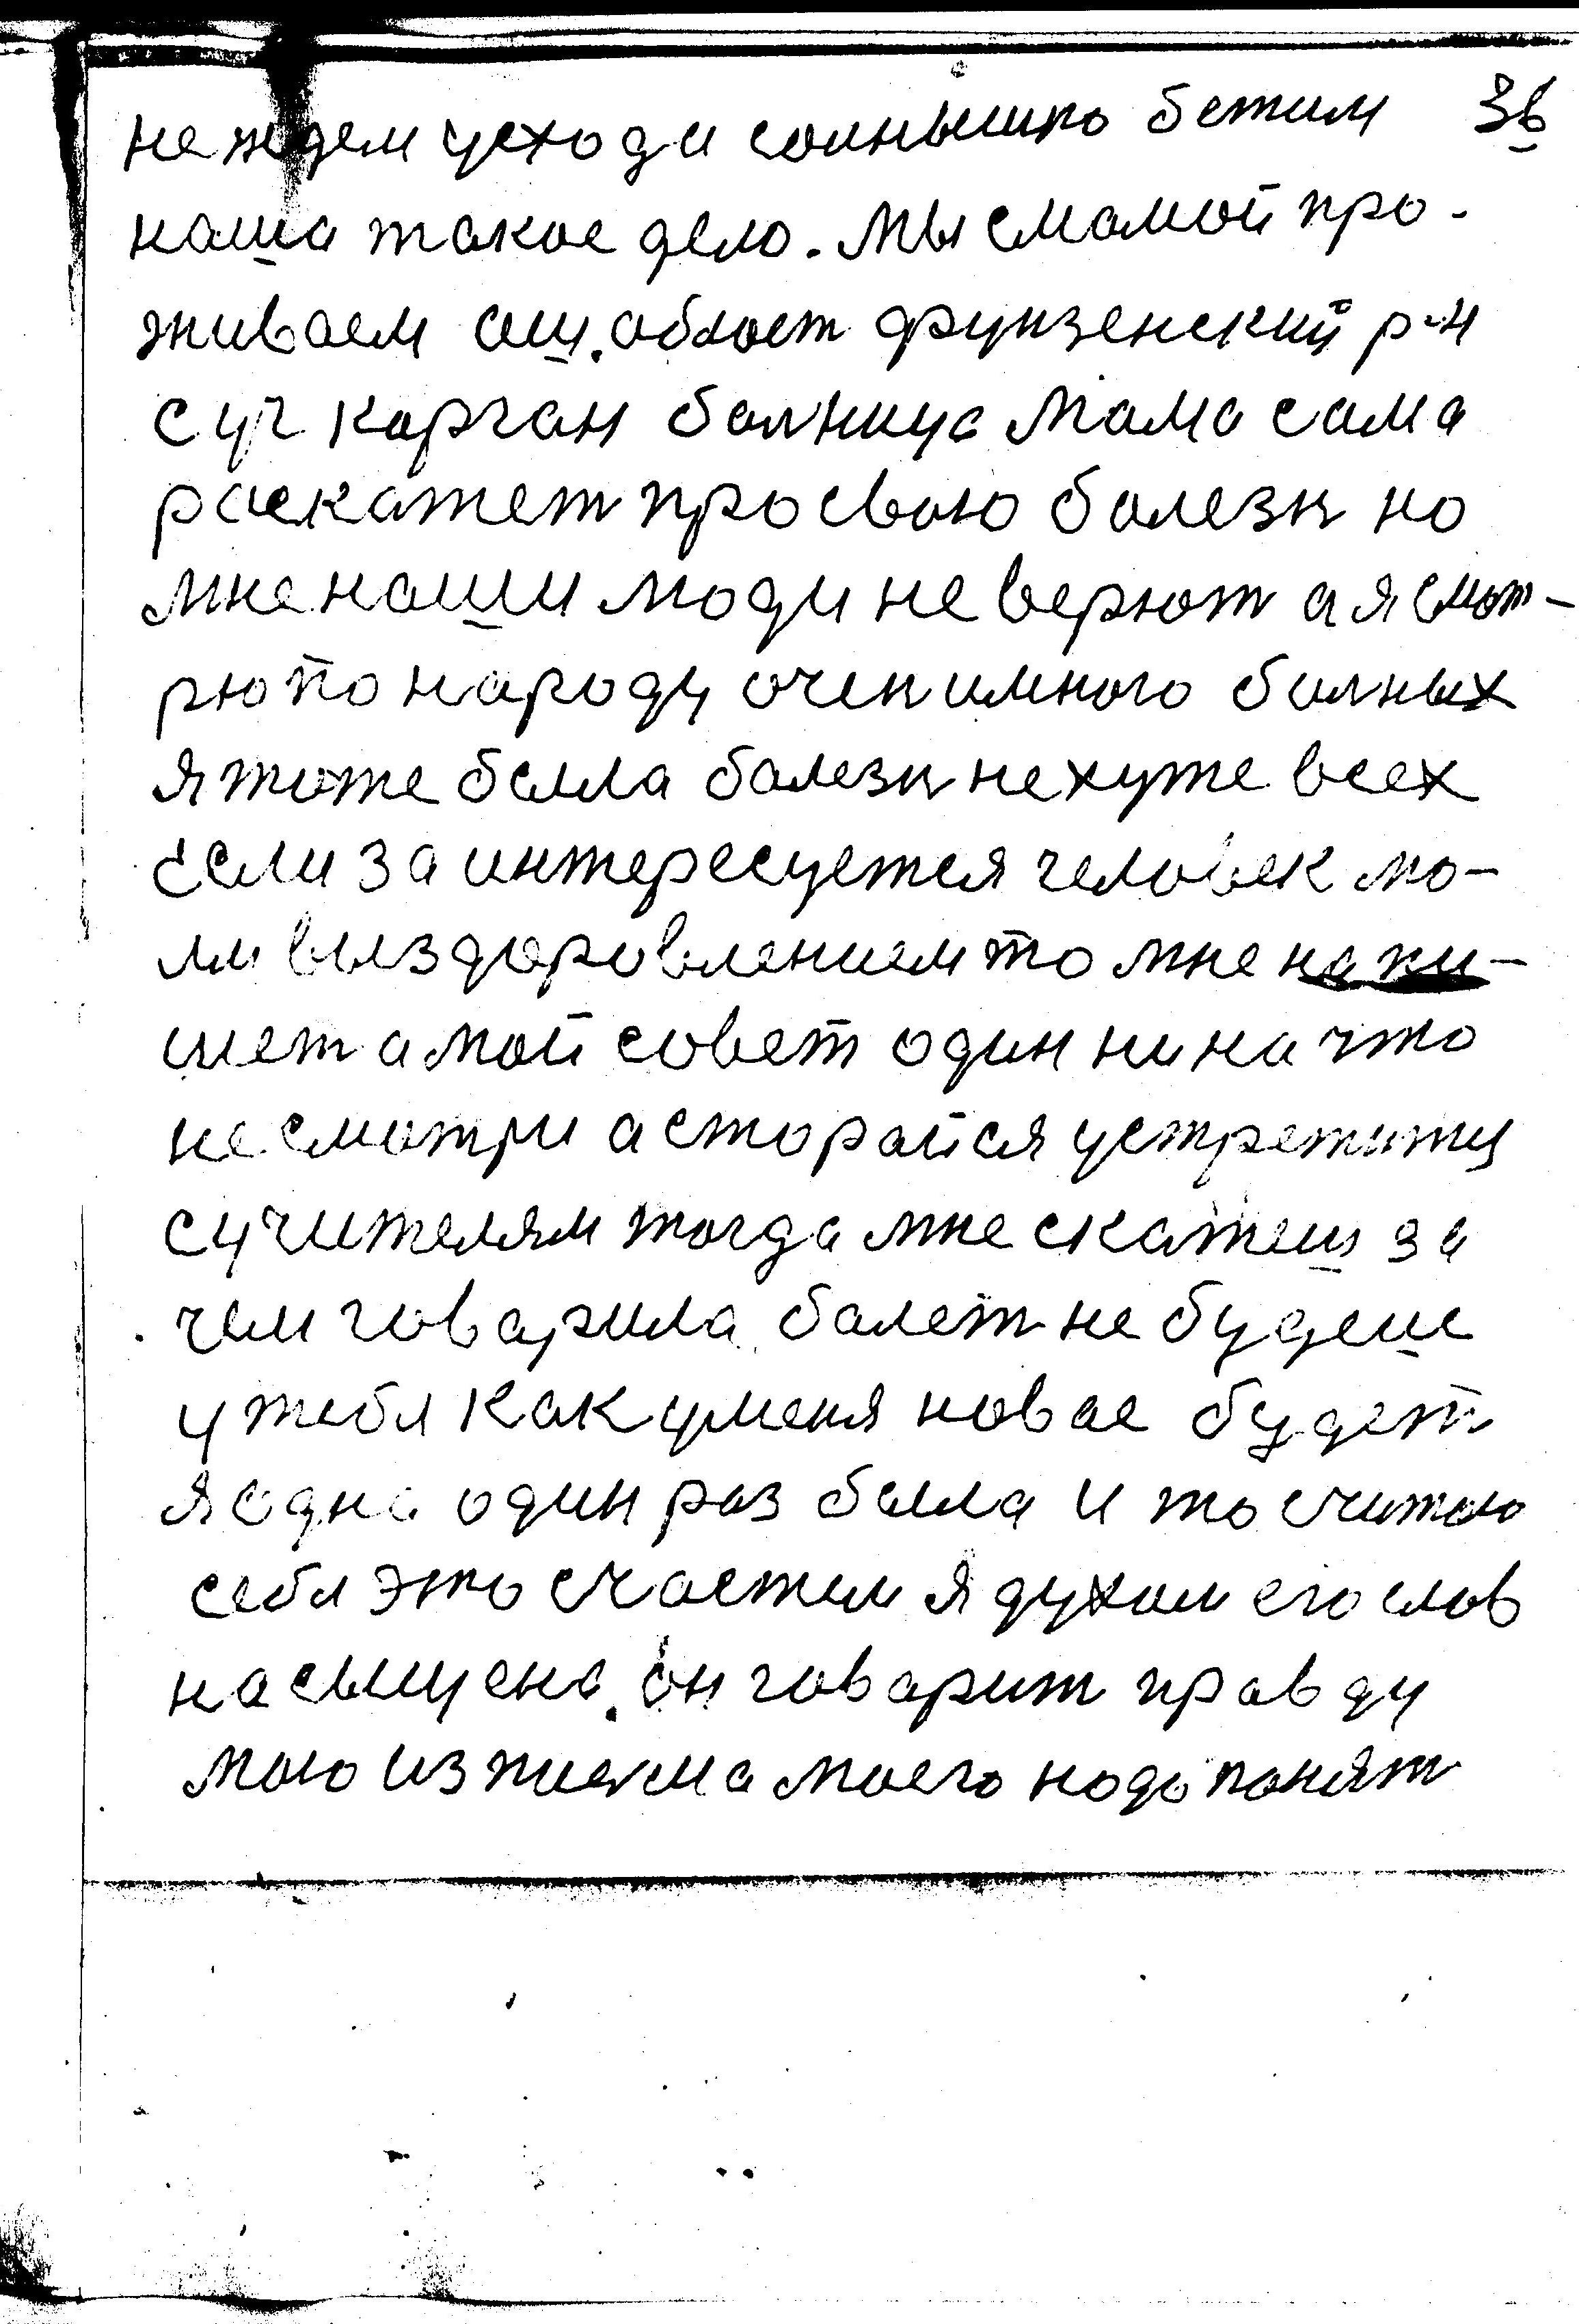 не ждем усхода солнышко бежим 36
наша такое дело. Мы с мамой про-
живаем ош. област фрунзенский р-н
с уч Корган болница Мама сама
раскажет про свою болезн но
мне наши люди не верют а я смот-
рю по народу очен много болных
я тоже была болезн не хуже всех
если за интересуется человек мо-
им выздоровлением то мне напи-
шет а мой совет один ни на что
не смотри а сторайся устретитц
с учителям тогда мне скажеш за
чем говарила балет не будеш
у тебя как у меня новае будет
я одна один раз была и то считаю
себя это счастем я духом его слов
насыщена. он говарит правду
мою из писма моего надо понят